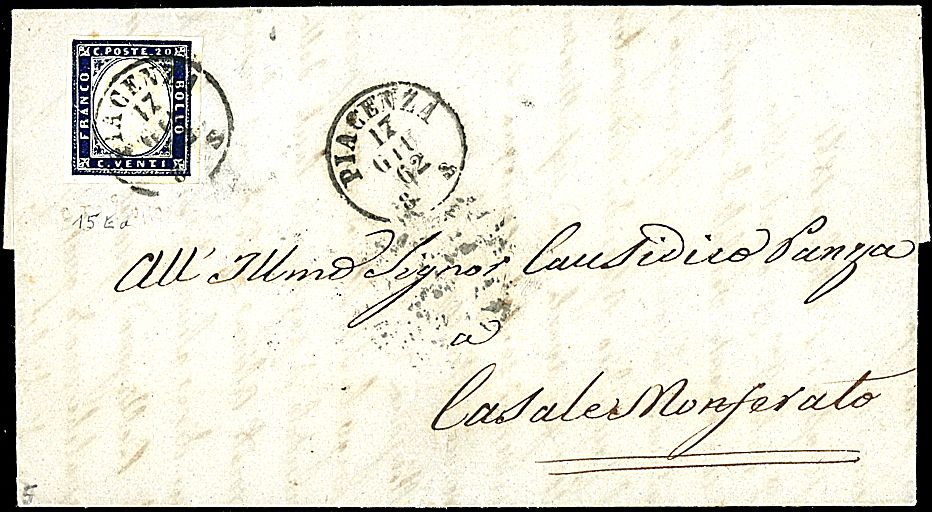 C. POSTE. 20
FRANCO
BOLLO
C. VENTI
PIACENZA
17
GIU
PIACENZA
17
GIU
62
8
S
15 Ea
All' Illmo Signor Causidico Panza
a
Casale Monferato